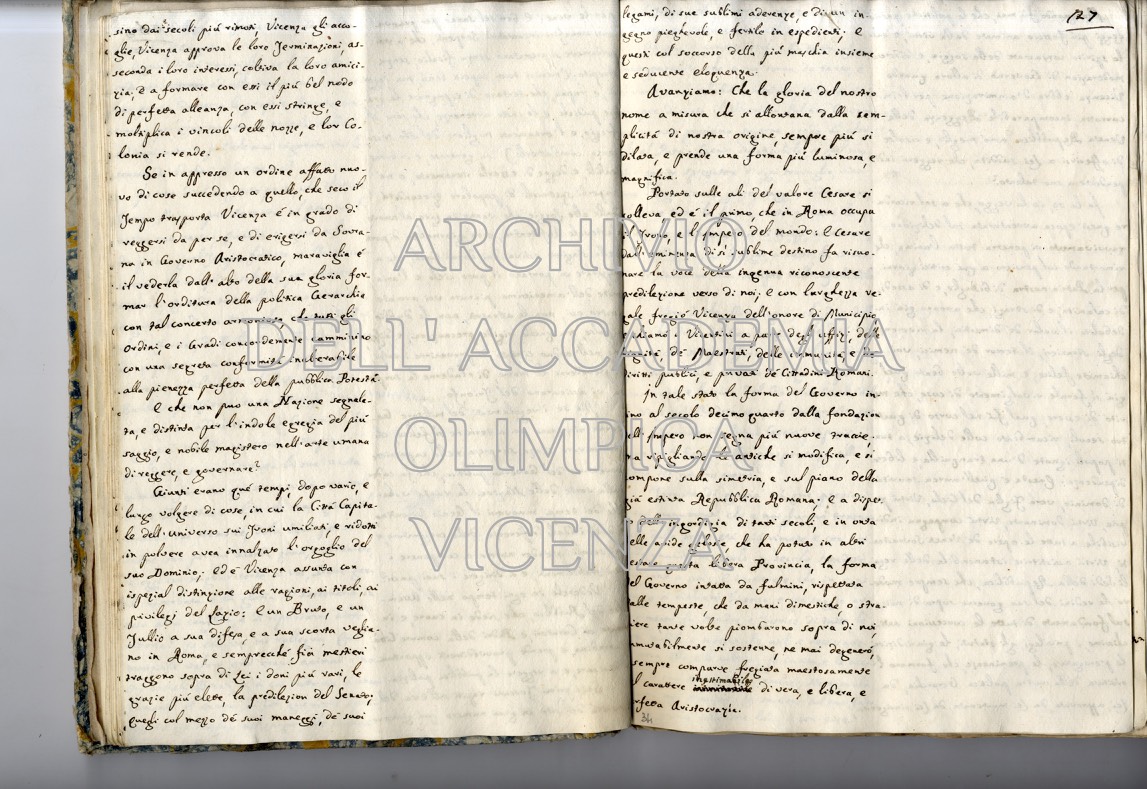 sino dai secoli più rimoti, Vicenza gli acco-
glie, Vicenza approva le loro Terminazioni, as-
seconda i loro interessi, coltiva la loro amici-
zia, e a formare con essi il più bel nodo
di perfetta alleanza, con essi stringe, e
moltiplica i vincoli delle nozze, e lor Co-
lonia si rende.
Se in appresso un ordine affatto nuo-
vo di cose succedendo a quello, che seco il
Tempo trasporta Vicenza é in grado di
reggersi da per se, e di erigersi da Sovra-
na in Governo Aristocratico, maraviglia é
il vederla dall'alto della sua gloria for-
mar l'orditura della politica Gerarchia
con tal concerto armonioso, che tutti gli
ordini, e i Gradi concordemente camminino
con una segreta conformità inalterabile
alla pienezza perfetta della pubblica Potestà.
E che non può una Nazione segnala-
ta, e distinta per l'indole egregia del più
saggio, e nobile magistero nell'arte umana
di reggere, e governare?
Giunti erano què tempi, dopo vario, e
lungo volgere di cose, in cui la Città Capita-
le dell'universo sui Troni umiliati, e ridotti
in polvere avea innalzato l'orgoglio del
suo Dominio; ed é Vicenza assunta con
ispezial distinzione alle ragioni, ai titoli, ai
privilegj del Lazio: E un Bruto, e un
Tullio a sua difesa, e a sua scorta veglia-
no in Roma, e semprecché fia mestieri
traggono sopra di Lei i doni più rari, le
grazie più elette, la predilezion del Senato;
quegli col mezzo dé suoi maneggi, dé suoi
127
legami, di sue sublimi aderenze, e di un in-
gegno pieghevole, e fertile in espedienti; E
questi col soccorso della più maschia insieme
e seducente eloquenza.
Avanziamo: Che la gloria del nostro
nome a misura che si allontana dalla sem-
plicità di nostra origine, sempre più si
dilata, e prende una forma più luminosa, e
magnifica.
Portato sulle ali del valore Cesare si
solleva ed é il primo, che in Roma occupa
il Trono, e l'Impero del mondo: E Cesare
dall'eminenza di sì sublime destino fa risuo-
nare la voce della ingenua riconoscente
predilezione verso di noi; E con larghezza re-
gale fregiò Vicenza dell'onore di Municipio
i Vicentini a degli uffizj, delle
dé Maestrati, delle comunità, e
diritti publici, e privati dé Cittadini Romani.
In tale stato la forma del Governo in-
sino al secolo decimo quarto dalla fondazion
dell'Impero non segna più nuove traccie.
ripigliando le antiche si modifica, e si
compone sulla simetria, e sul piano della
già estinta Repubblica Romana; E a dispet-
to dell'ingordigia di tanti secoli, e in onta
elle gelose, che ha potuto in altri
questa libera Provincia, la forma
del Governo intatta da fulmini, rispettata
dalle tempeste, che da mani dimestiche, o stra-
niere tante volte piombarono sopra di noi,
immutabilmente si sostenne, ne mai degenerò,
sempre comparve fregiata maestosamente
inestimabile
il carattere di vera, e libera, e
perfetta Aristocrazia.
34
ARCHIVIO
DELL' ACCADEMIA
OLIMPICA
VICENZA